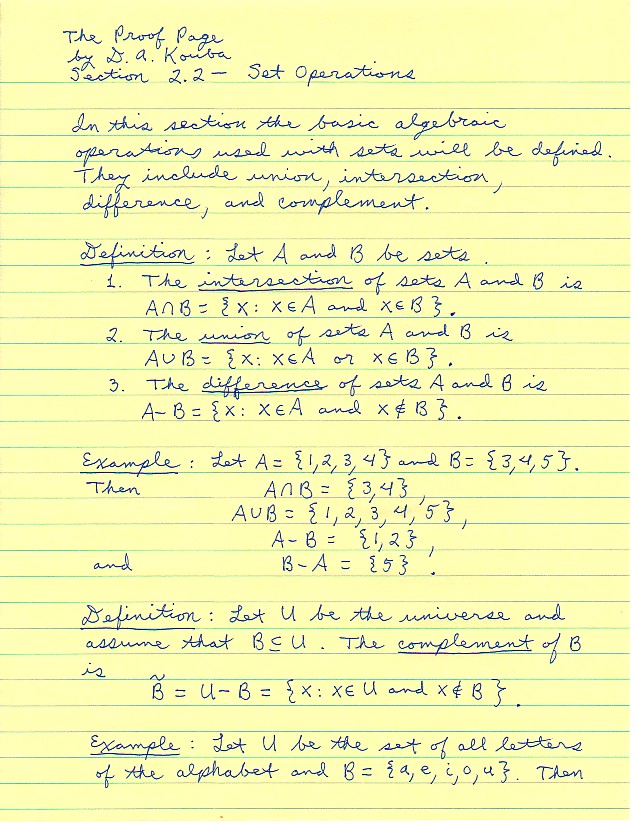 The Proof Page
by D. A. Kouba
Section 2.2 — Set Operations
In this section the basic algebraic
operations used with sets will be defined.
They include union, intersection,
difference, and complement.
Definition : Let A and B be sets.
1. The intersection of sets A and B is
A∩B = {x: x∈A and x∈B}.
2. The union of sets A and B is
A∪B = {x: x∈A or x∈B}.
3. The difference of sets A and B is
A-B = {x: x∈A and x∉B}.
Example : Let A = {1,2,3,4} and B = {3,4,5}.
Then A∩B = {3,4},
A∪B = {1,2,3,4,5},
A-B = {1,2},
and B-A = {5}.
Definition : Let U be the universe and
assume that B⊆U. The complement of B
is
B̃ = U-B = {x: x∈U and x∉B}.
Example : Let U be the set of all letters
of the alphabet and B = {a,e,i,o,u}. Then